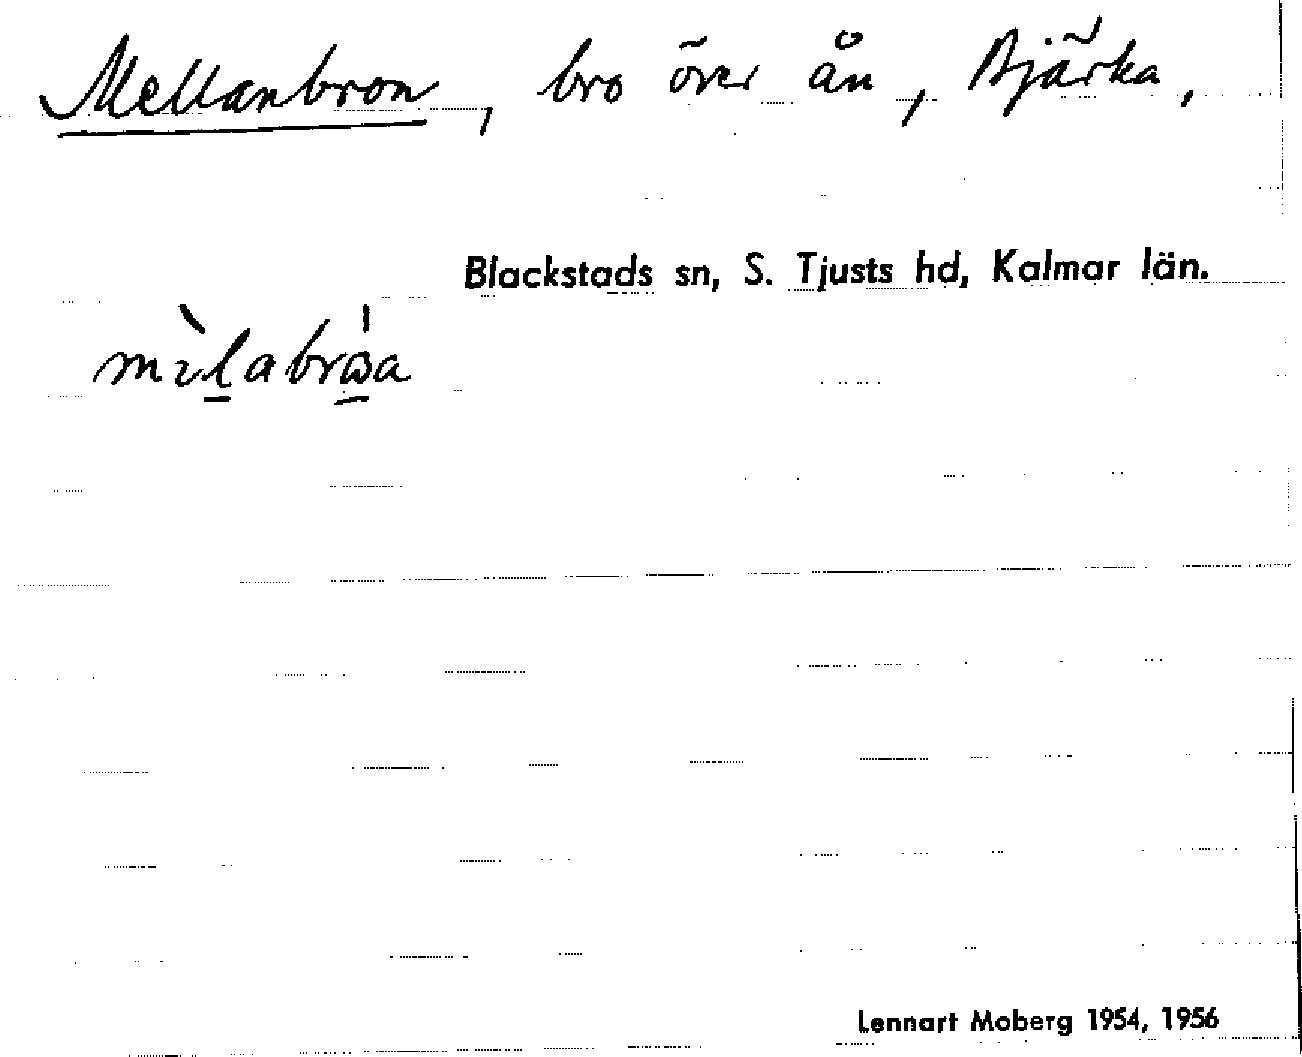 Mellanbron, bro över ån, Bjärka,
Blackstads sn, S. Tjusts hd, Kalmar län.
Lennart Moberg 1954, 1956